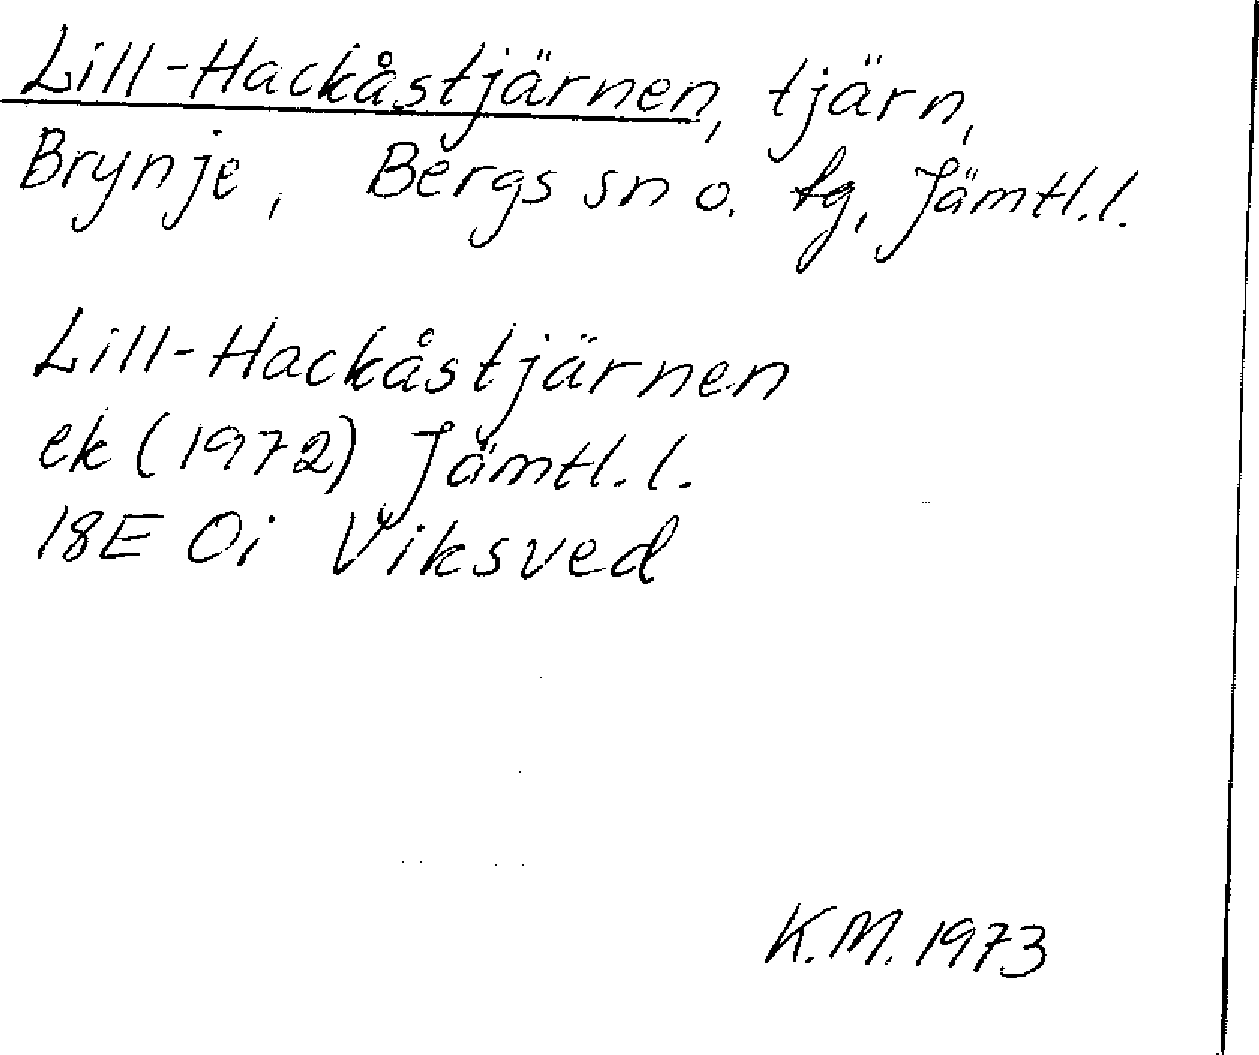 Lill-Hackåstjärnen, tjärn,
Brynje, Bergs sn o. tg, Jämtl.l.
Lill-Hackåstjärnen
ek (1972) Jämtl.l.
18E 0i Viksved
K.M. 1973